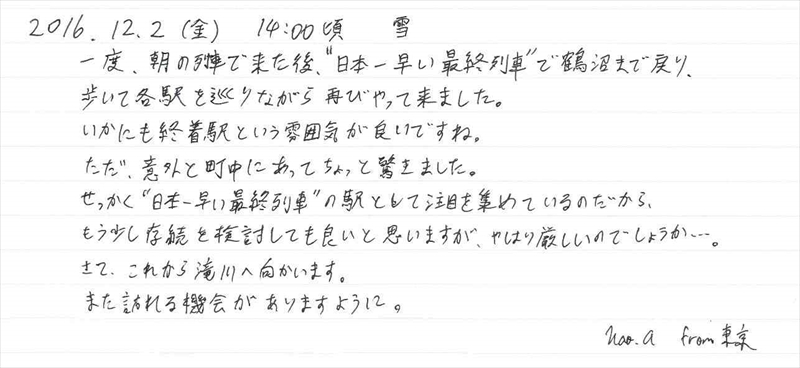 2016.12.2(金) 14:00頃 雪
一度、朝の列車で来た後、"日本一早い最終列車"で鶴沼まで戻り、
歩いて各駅を巡りながら再びやって来ました。
いかにも終着駅という雰囲気が良いですね。
ただ、意外と町中にあってちょっと驚きました。
せっかく"日本一早い最終列車"の駅として注目を集めているのだから、
もう少し存続を検討しても良いと思いますが、やはり厳しいのでしょうか…。
さて、これから滝川へ向かいます。
また訪れる機会がありますように。
nao.a from東京